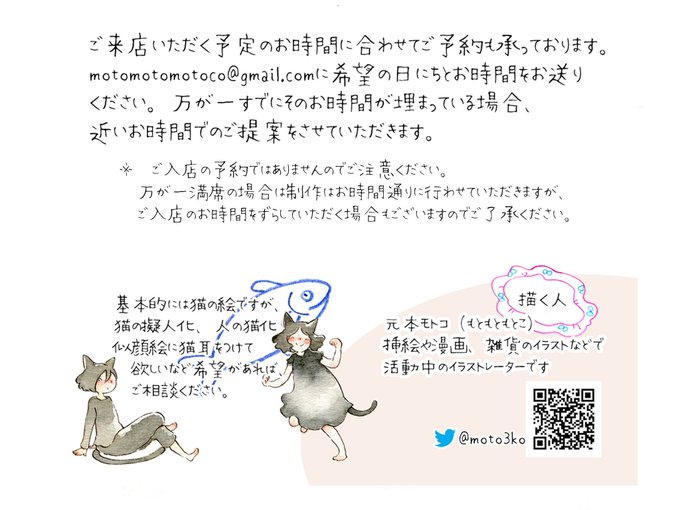 ご来店いただく予定のお時間に合わせてご予約も承っております。
motomotomotoco@gmail.comに希望の日にちとお時間をお送り
ください。万が一すでにそのお時間が埋まっている場合、
近いお時間でのご提案をさせていただきます。
※ ご入店の予約ではありませんのでご注意ください。
万が一満席の場合は制作はお時間通りに行わせていただきますが、
ご入店のお時間をずらしていただく場合もございますのでご了承ください。
基本的には猫の絵ですが、
猫の擬人化、人の猫化
似顔絵に猫耳をつけて
欲しいなど希望があれば
ご相談ください。
描く人
元本モトコ（もともともとこ）
挿絵や漫画、雑貨のイラストなどで
活動中のイラストレーターです
@moto3ko